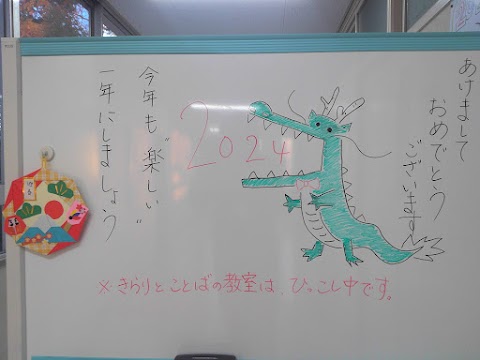 あけまして
おめでとう
ございます
2024
今年も"楽しい"
一年にしましょう
※きらりとことばの教室は、ひっこし中です。